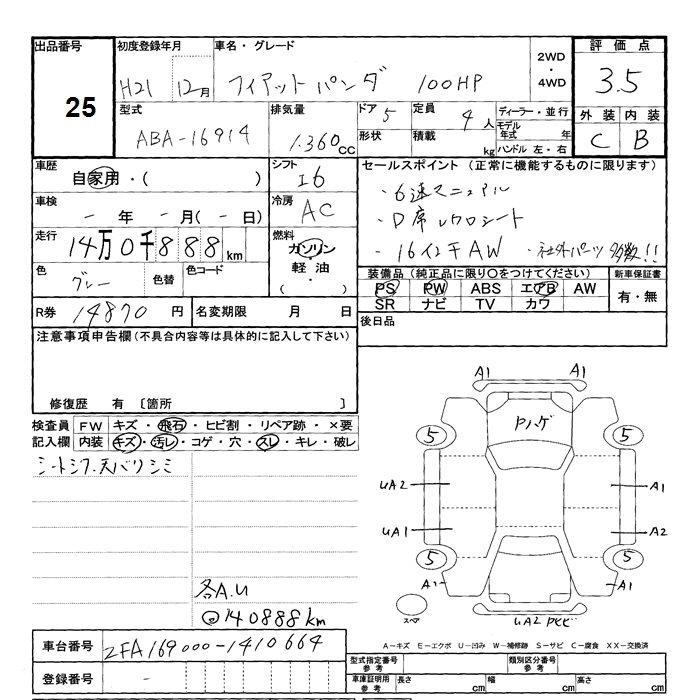 出品番号 初度登録年月 車名・グレード 2WD・4WD 評価点
25 H21 12月 フィアットパンダ 100HP 3.5
型式 排気量 ドア 5 定員 4人 ディーラー・並行 外装 内装
ABA-16914 1.360cc 形状 積載 kg モデル年式 年 C B
ハンドル 左・右
車歴 シフト セールスポイント(正常に機能するものに限ります)
自家用・( ) I6 ・6速マニュアル
車検 冷房 ・D席レカロシート
- 年 - 月(- 日) AC ・16インチAW ・社外パーツ多数!!
走行 燃料
14万0千888km ガソリン
軽油
・
色 色替 色コード 装備品(純正品に限り○をつけてください) 新車保証書
グレー PS PW ABS エアB AW 有・無
SR ナビ TV カワ
R券 14870円 名変期限 月 日 後日品
注意事項申告欄(不具合内容等は具体的に記入して下さい)
修復歴 有 [箇所 ]
検査員 FW キズ・飛石・ヒビ割・リペア跡・×要
記入欄 内装 キズ・汚レ・コゲ・穴・スレ・キレ・破レ
シートシワ.天バリシミ
各A.U
◎140888km
A1 A1
Pハゲ
5 5
UA2 A1
UA1 A2
5 5
A1 A1
スペア UA2 PXビ
A－キズ E－エクボ U－凹み W－補修跡 S－サビ C－腐食 XX－交換済
車台番号 ZFA169000-1410664
登録番号 -
型式指定番号参考 類別区分番号参考
車庫証明用参考 長さ cm 幅 cm 高さ cm